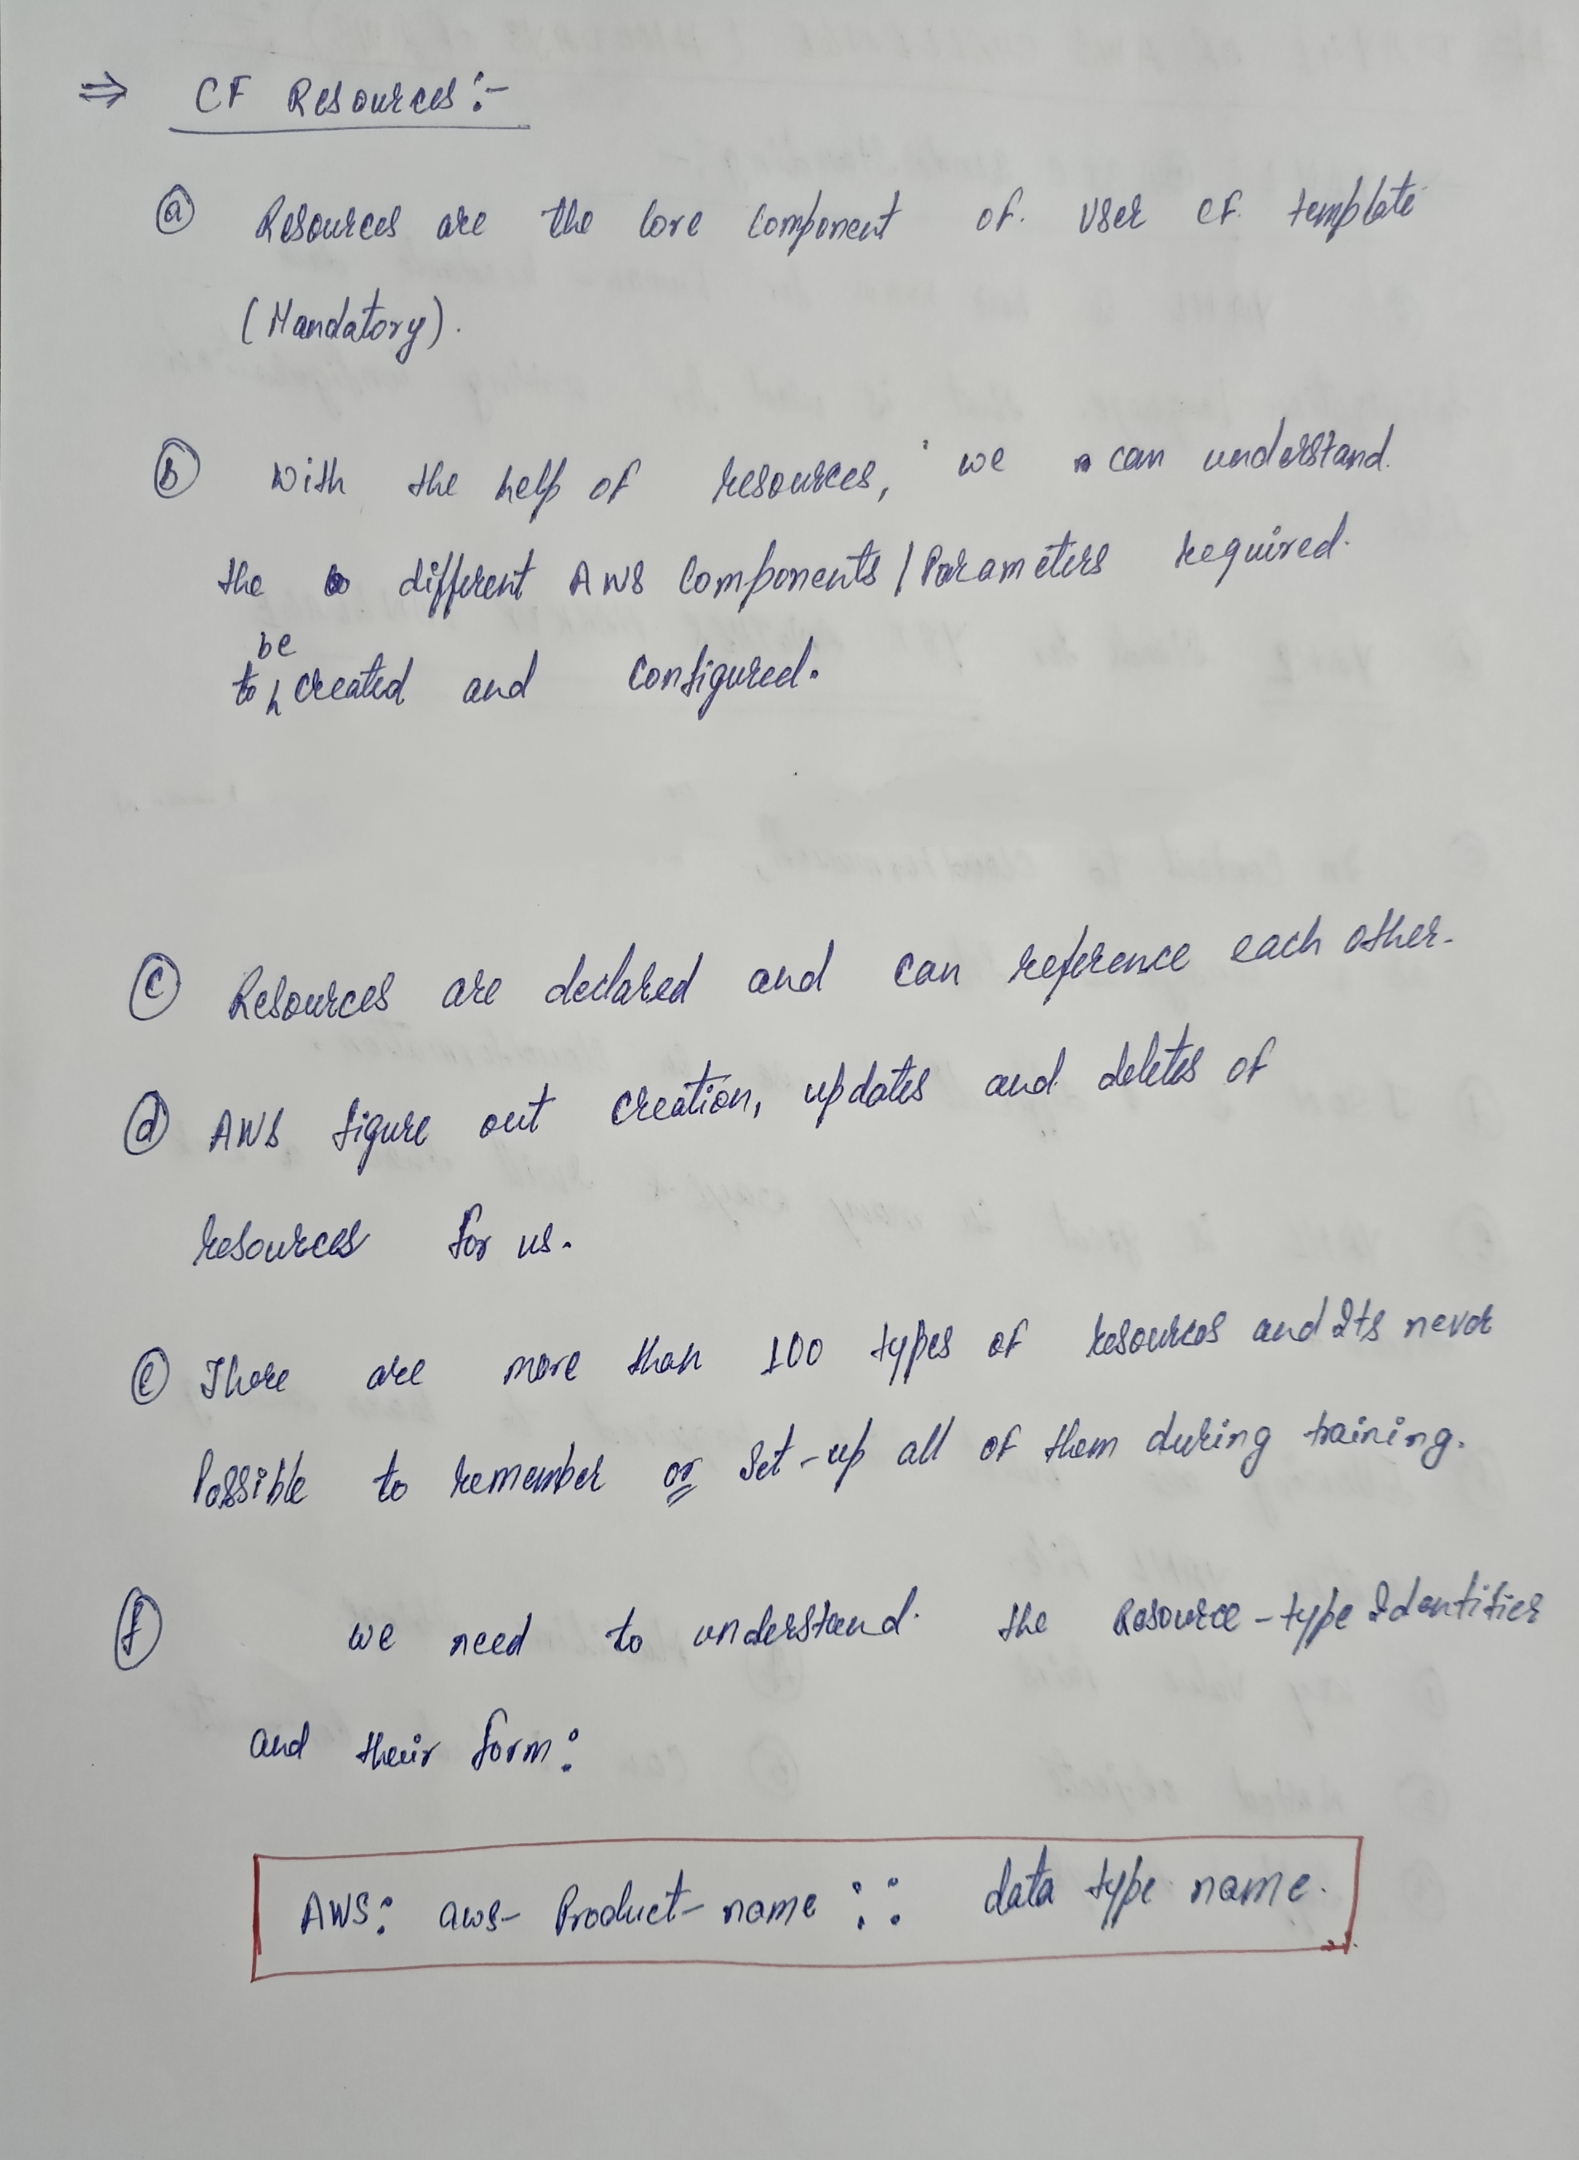 ⇒ CF Resources :-
ⓐ Resources are the core component of user CF template
(Mandatory).
ⓑ With the help of resources, we can understand
the different AWS Components / Parameters required
be
to created and configured.
ⓒ Resources are declared and can reference each other.
ⓓ AWS figure out creation, updates and deletes of
resources for us.
ⓔ There are more than 100 types of resources and Its never
Possible to remember or set-up all of them during training.
ⓕ we need to understand the Resource-type Identifier
and their form:
AWS: aws- Product-name :: data type name.